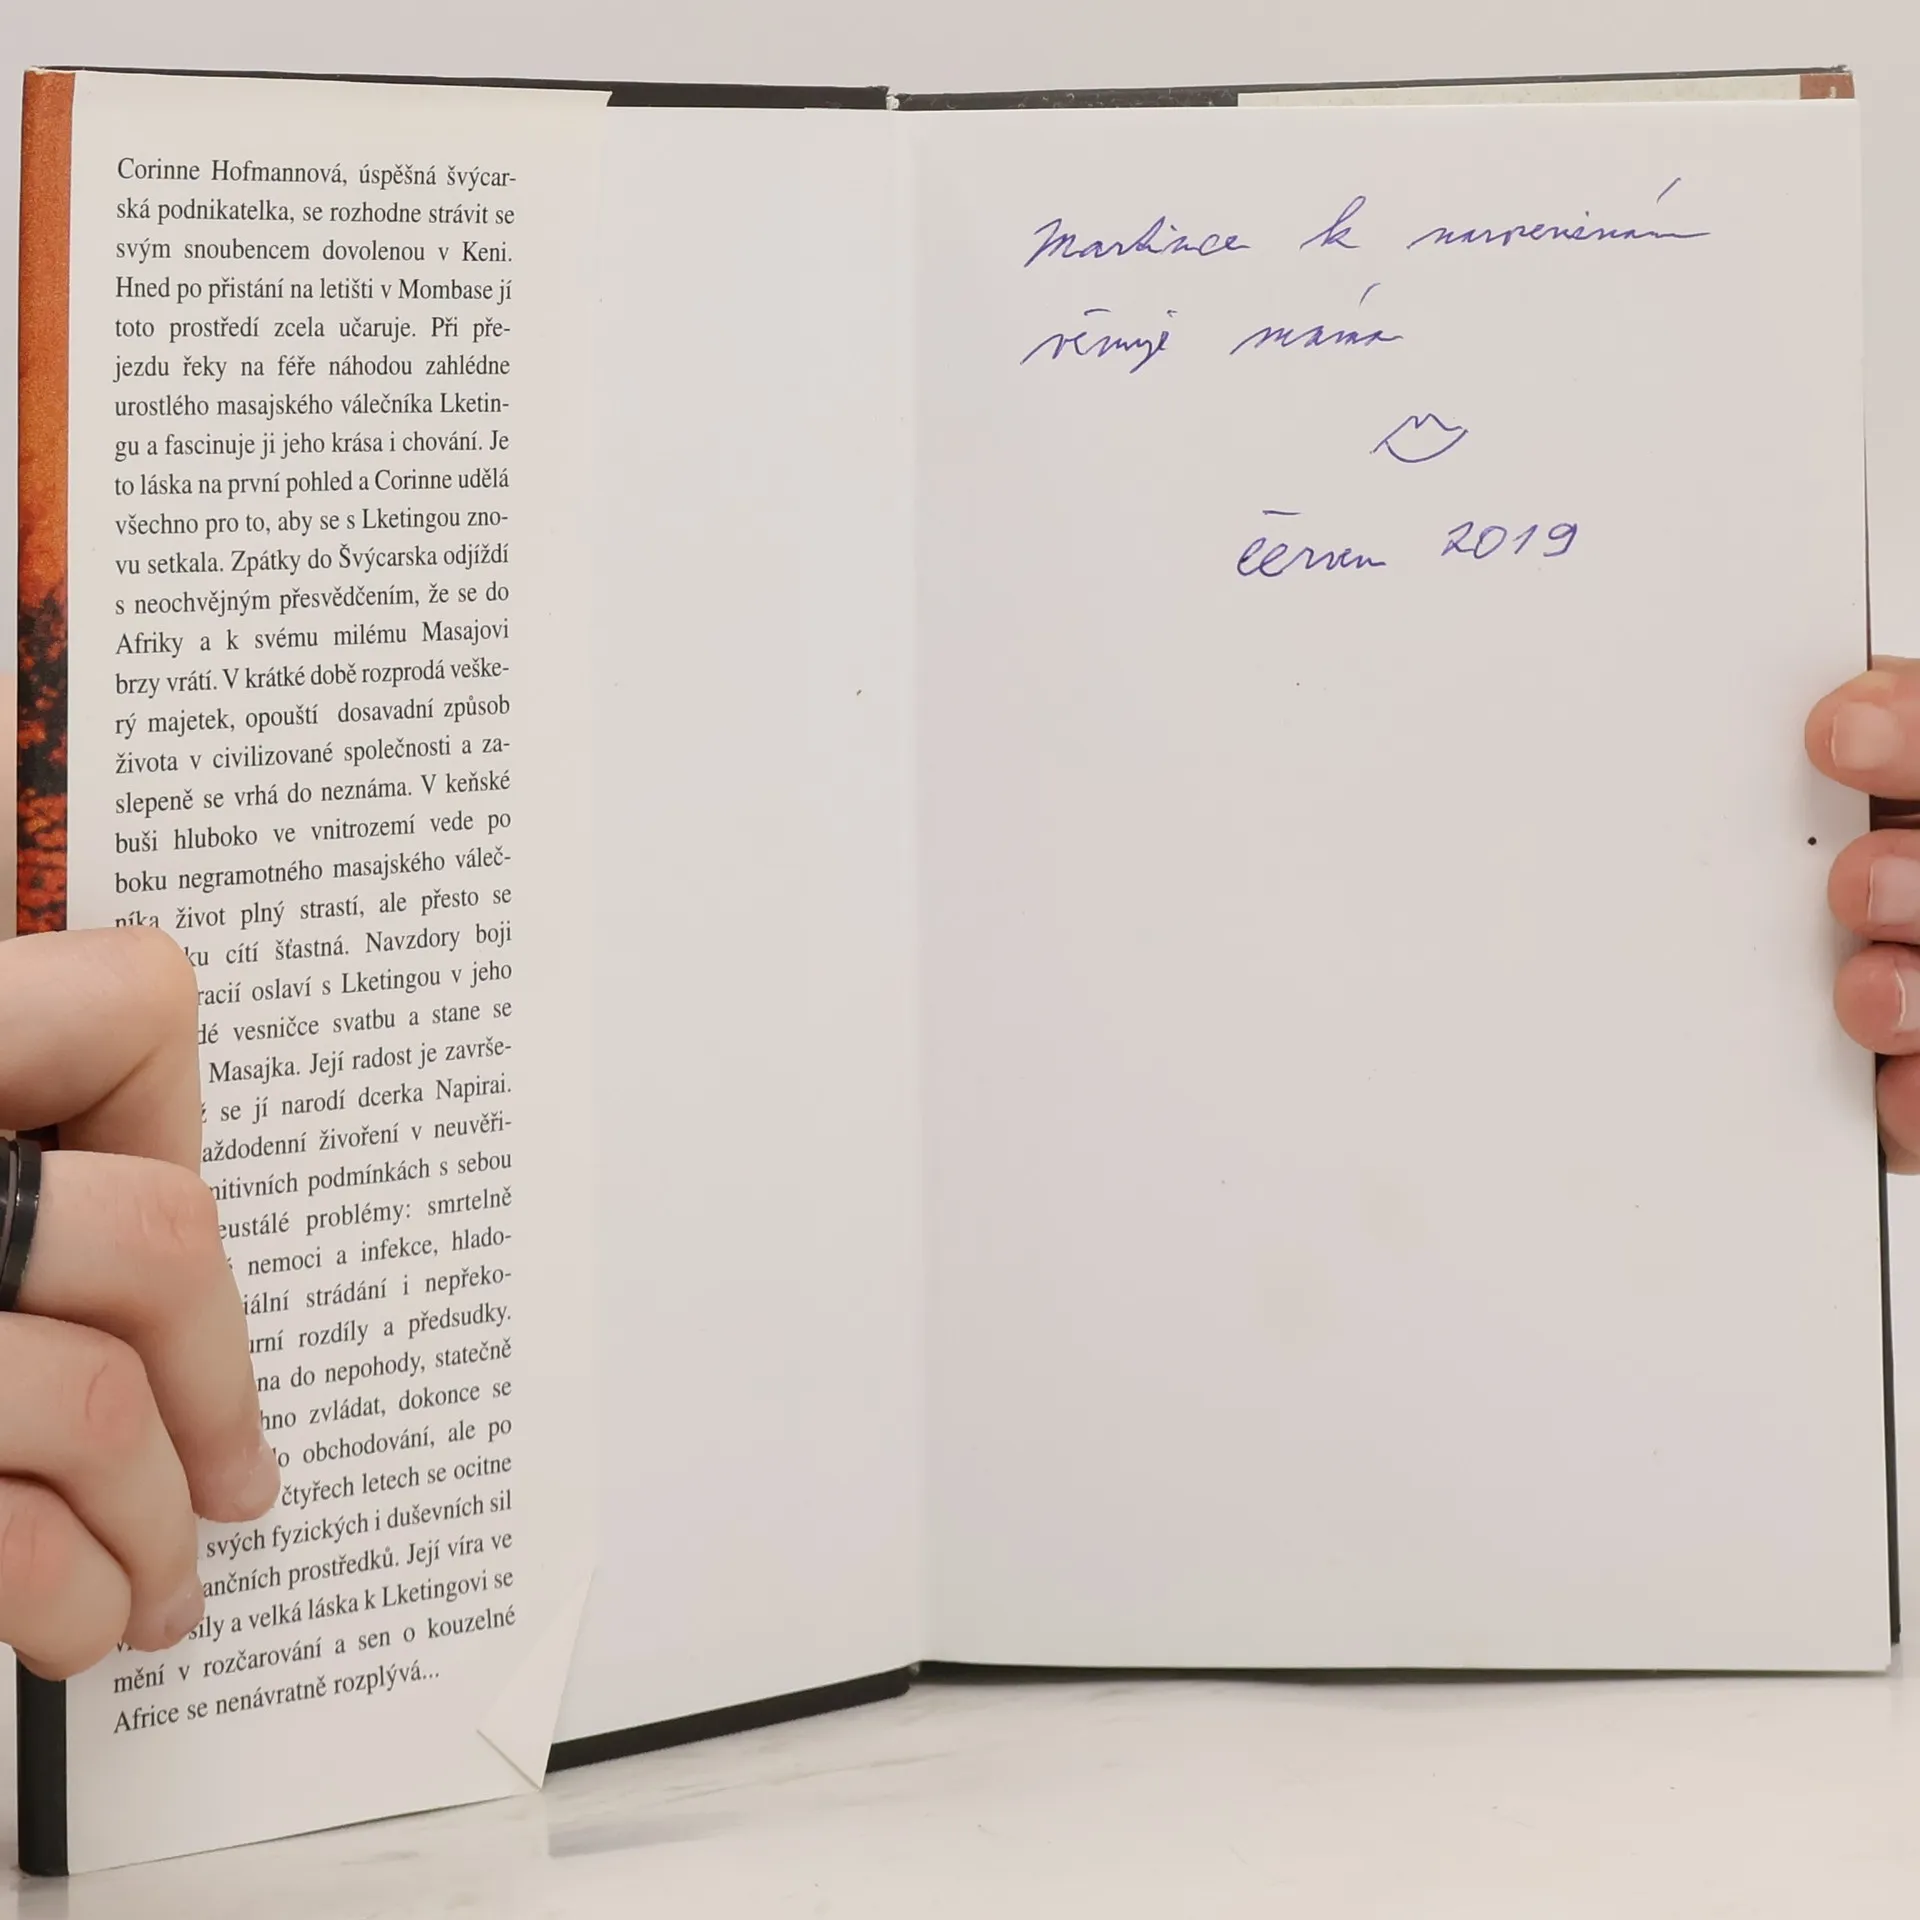 Corinne Hofmannová, úspěšná švýcar-
ská podnikatelka, se rozhodne strávit se
svým snoubencem dovolenou v Keni.
Hned po přistání na letišti v Mombase jí
toto prostředí zcela učaruje. Při pře-
jezdu řeky na féře náhodou zahlédne
urostlého masajského válečníka Lketin-
gu a fascinuje ji jeho krása i chování. Je
to láska na první pohled a Corinne udělá
všechno pro to, aby se s Lketingou zno-
vu setkala. Zpátky do Švýcarska odjíždí
s neochvějným přesvědčením, že se do
Afriky a k svému milému Masajovi
brzy vrátí. V krátké době rozprodá veške-
rý majetek, opouští dosavadní způsob
života v civilizované společnosti a za-
slepeně se vrhá do neznáma. V keňské
buši hluboko ve vnitrozemí vede po
boku negramotného masajského váleč-
níka život plný strastí, ale přesto se
ku cítí šťastná. Navzdory boji
racií oslaví s Lketingou v jeho
dé vesničce svatbu a stane se
Masajka. Její radost je završe-
se jí narodí dcerka Napirai.
aždodenní živoření v neuvěři-
mitivních podmínkách s sebou
eustálé problémy: smrtelně
nemoci a infekce, hlado-
iální strádání i nepřeko-
urní rozdíly a předsudky.
na do nepohody, statečně
hno zvládat, dokonce se
o obchodování, ale po
čtyřech letech se ocitne
svých fyzických i duševních sil
ančních prostředků. Její víra ve
síly a velká láska k Lketingovi se
mění v rozčarování a sen o kouzelné
Africe se nenávratně rozplývá...
Martince k narozeninám
věnuje máma
červen 2019